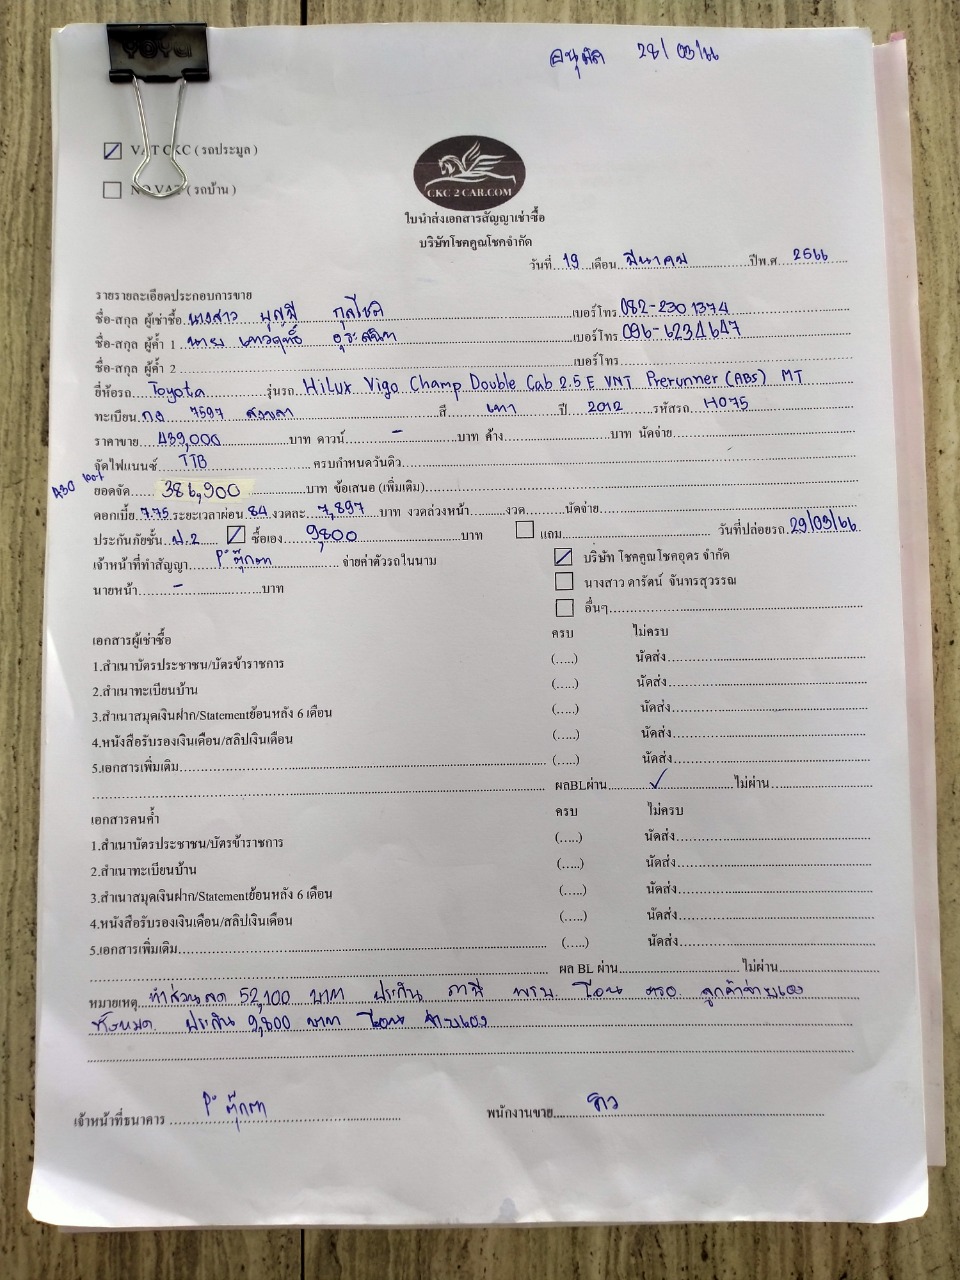 อนุมัติ 28/03/66
VAT CKC ( รถประมูล )
NO VAT ( รถบ้าน )
CKC 2 CAR.COM
ใบนำส่งเอกสารสัญญาเช่าซื้อ
บริษัทโชคคูณโชคจำกัด
วันที่ 19 เดือน มีนาคม ปีพ.ศ. 2566
รายรายละเอียดประกอบการขาย
ชื่อ-สกุล ผู้เช่าซื้อ นางสาว บุญมี กุลโชติ เบอร์โทร 082-230 1374
ชื่อ-สกุล ผู้ค้ำ 1 นาย เบอร์โทร 096-6234647
ชื่อ-สกุล ผู้ค้ำ 2 เบอร์โทร
ยี่ห้อรถ Toyota รุ่นรถ HiLux Vigo Champ Double Cab 2.5 E VNT Prerunner (ABS) MT
ทะเบียน กง 7597 สงขลา สี เทา ปี 2012 รหัสรถ H075
ราคาขาย 439,000 บาท ดาวน์ - บาท ค้าง บาท นัดจ่าย
จัดไฟแนนซ์ TTB ครบกำหนดวันคิว
ยอดจัด 386,900 บาท ข้อเสนอ (เพิ่มเติม)
ดอกเบี้ย 7.75 ระยะเวลาผ่อน 84 งวดละ 7,897 บาท งวดล่วงหน้า งวด นัดจ่าย
ประกันภัยชั้น ป.2 ซื้อเอง 9,800 บาท แถม วันที่ปล่อยรถ 29/03/66
เจ้าหน้าที่ทำสัญญา P' ตุ๊กตา จ่ายค่าตัวรถในนาม บริษัท โชคคูณโชคอุดร จำกัด
นางสาว ดารัตน์ จันทรสุวรรณ
นายหน้า - บาท
อื่นๆ
เอกสารผู้เช่าซื้อ ครบ ไม่ครบ
1.สำเนาบัตรประชาชน/บัตรข้าราชการ (.....) นัดส่ง
2.สำเนาทะเบียนบ้าน (.....) นัดส่ง
3.สำเนาสมุดเงินฝาก/Statementย้อนหลัง 6 เดือน (.....) นัดส่ง
4.หนังสือรับรองเงินเดือน/สลิปเงินเดือน (.....) นัดส่ง
5.เอกสารเพิ่มเติม (.....) นัดส่ง
ผลBLผ่าน ✓ ไม่ผ่าน
เอกสารคนค้ำ ครบ ไม่ครบ
1.สำเนาบัตรประชาชน/บัตรข้าราชการ (.....) นัดส่ง
2.สำเนาทะเบียนบ้าน (.....) นัดส่ง
3.สำเนาสมุดเงินฝาก/Statementย้อนหลัง 6 เดือน (.....) นัดส่ง
4.หนังสือรับรองเงินเดือน/สลิปเงินเดือน (.....) นัดส่ง
5.เอกสารเพิ่มเติม (.....) นัดส่ง
ผล BL ผ่าน ไม่ผ่าน
หมายเหตุ ทำส่วนลด 52,100 บาท ประกัน ภาษี พรบ. โอน ตรอ. ลูกค้าจ่ายเอง
ทั้งหมด ประกัน 9,800 บาท โอน จ่ายเอง
เจ้าหน้าที่ธนาคาร P' ตุ๊กตา พนักงานขาย คิว